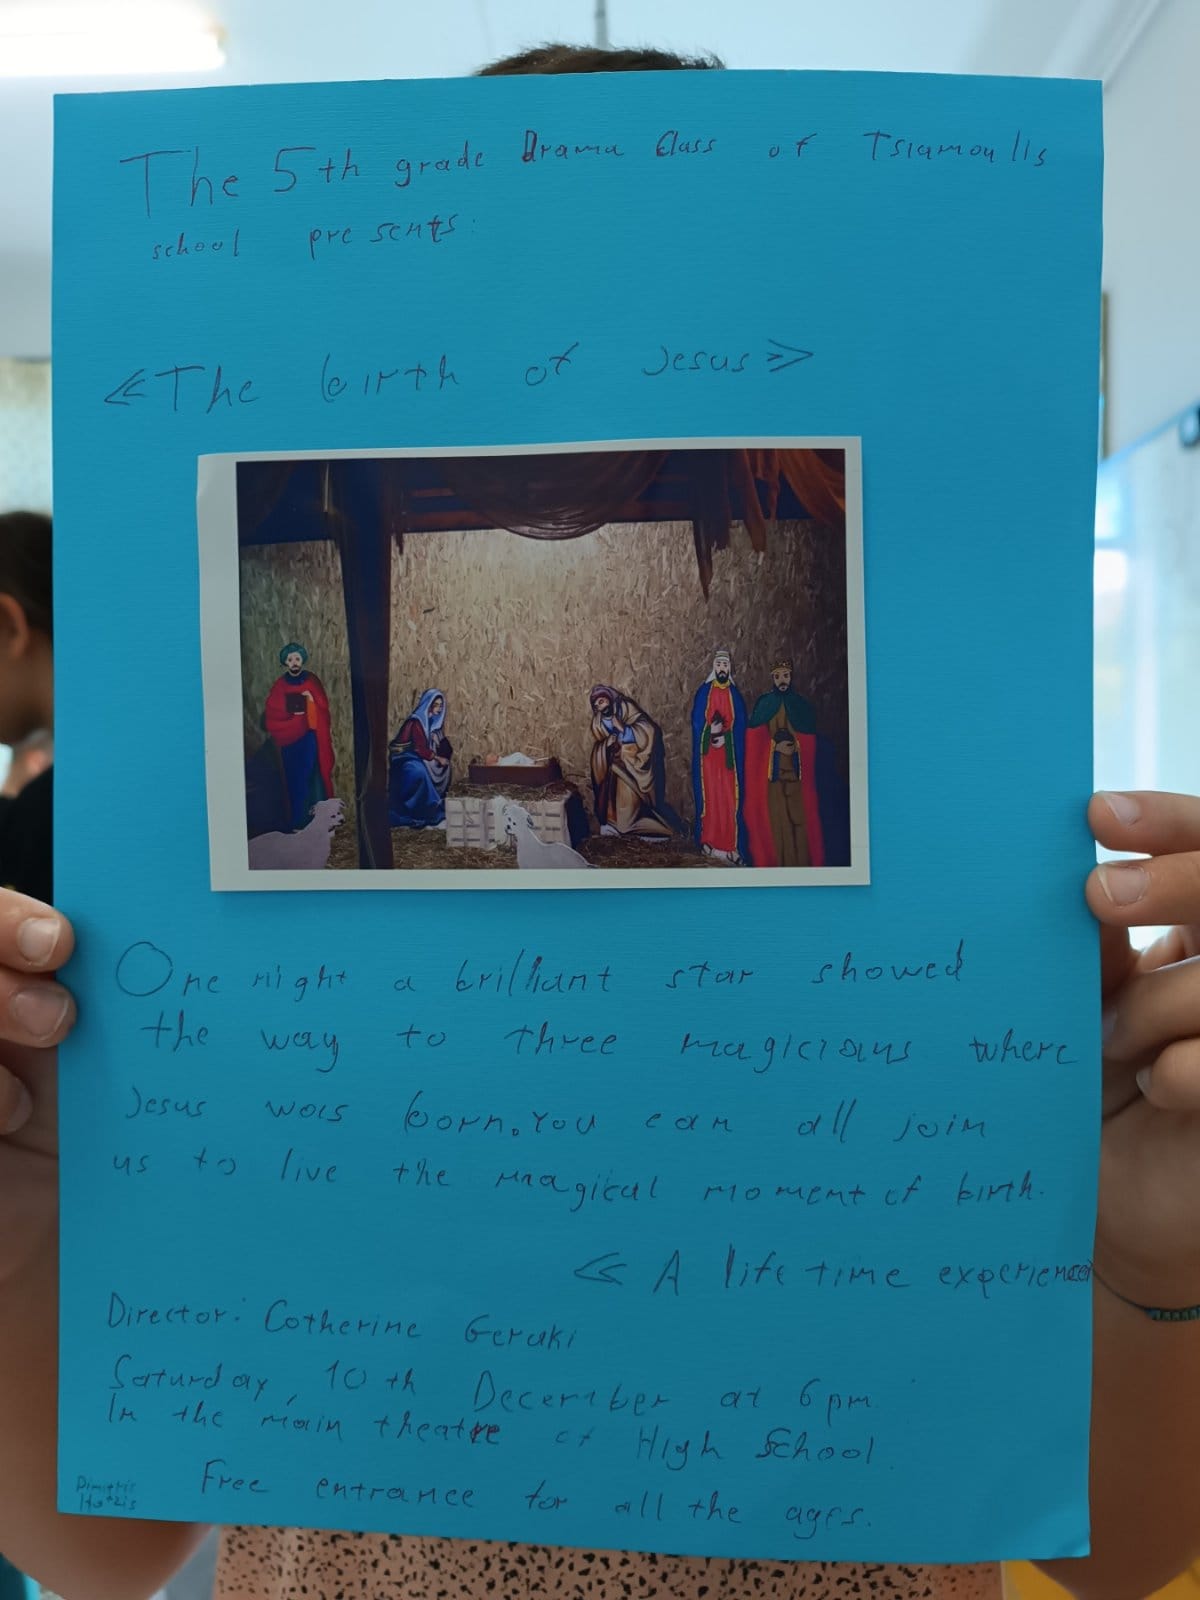 The 5th grade Drama Class of Tsiamoulis
school presents:
«The birth of Jesus»
One night a brilliant star showed
the way to three magicians where
Jesus was born. You can all join
us to live the magical moment of birth.
« A life time experience»
Director: Catherine Geraki
Saturday, 10th December at 6 pm.
In the main theatre of High School.
Free entrance for all the ages.
Dimitris
Hatzis